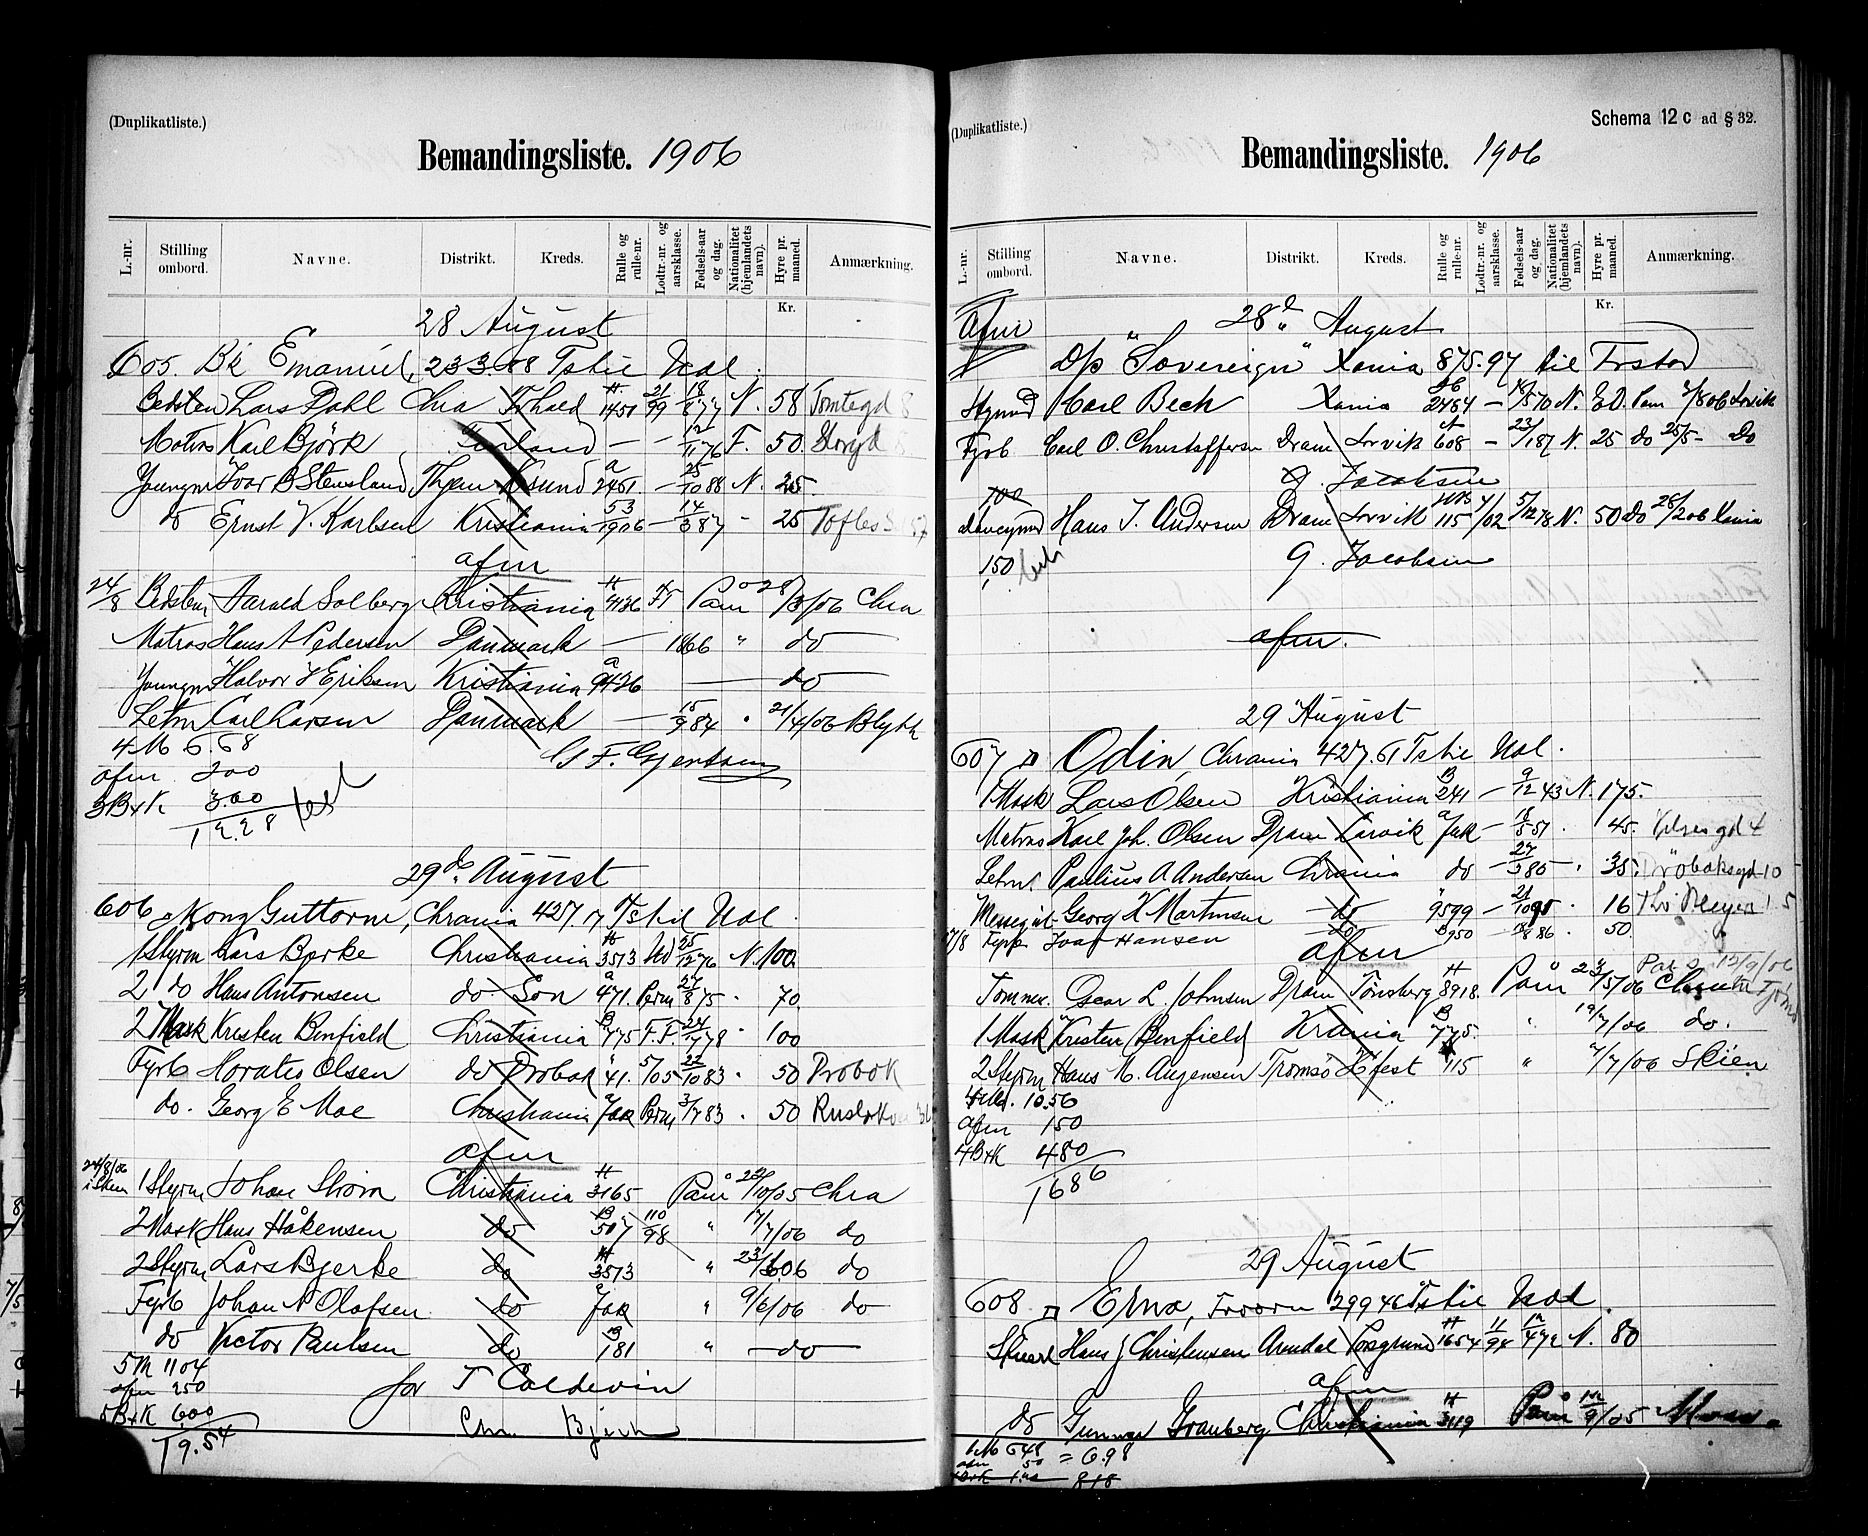 (Duplikatliste.)
Bemandingsliste. 1906
L.-nr. Stilling ombord. Navne. Distrikt. Kreds. Rulle og rulle-nr. Lodtr.-nr. og aarsklasse. Fødsels-aar og dag. Nationalitet (hjemlandets navn). Hyre pr. maaned. Anmærkning.
Kr.
28 August
605. Bk Emanuel, 233.08 Ts til Udl.
Bedstem Lars Dahl Chra Fr.hald 1451 21/99 18/8 77 N. 58 Tomtegd 8
Matros Karl Björk Finland — — 12/11 76 F. 50.
Youngm Ivar B Stensland Thjem K.sund a 2461 — 25/10 88 N. 25.
do Ernst V. Karlsen Kristiania 53/1906 — 14/3 87 - 25
afm
24/8 Bedstem Harald Solberg Kristiania 4136 Fr Paam 28/3/06 Chra
Matros Hans A Pedersen Danmark — 1866 " do
Youngm Halvor H Eriksen Kristiania a 9436 — do
Letm Carl Larsen Danmark — 15/9 84 " 21/4/06 Blyth
4 M 6.68
afm 200
3 B+K 300
12.28
29de August
606 Kong Guttorm, Chrania 427.17 Ts til Udl.
1 Styrm Lars Bjerke Christiania 3513 Ud 25/12 76 N. 100.
2 do Hans Antonsen do Son a 471. Perm 27/8 75 - 70.
2 Mask Kristen Benfield Christiania B 775 F.F. 24/1 78 - 100
Fyrb Horatio Olsen do Drobak " 41. 5/05 22/10 83 - 50 Drobak
do. Georg E Moe Christiania Jak Perm 3/7 83 . 50
afm
24/8/06 i Skien 1 Styrm Johan Strøm Christiania 3165 Paam 22/10/05 Chra
2 Mask Hans Håkensen do B 507 110/98 " 17/7/06 do
2 Styrm Lars Bjerke do 3513 " 23/6 06 do
Fyrb Johan N Olafsen do Jak " 9/6/06 do
do Victor Paulsen do B 181 " — do —
5 M 11 04
afm 250
5 B+K 600
19.54
for T Coldevin
Chr. Bjerk
(Duplikatliste.)
Schema 12 c ad § 32.
Bemandingsliste. 1906
L.-nr. Stilling ombord. Navne. Distrikt. Kreds. Rulle og rulle-nr. Lodtr.-nr. og aarsklasse. Fødsels-aar og dag. Nationalitet (hjemlandets navn). Hyre pr. maaned. Anmærkning.
Kr.
Afm 28de August
D/p "Sovereign" Xania 875.97 til
Carl Bech Xania 2484 — 70 N.
Fyrb Carl O. Christoffersen Dram Larvik 608 — 23/1 87 N. 25 do 25/5 — do
G. Jacobsen
100
Hans J. Andersen Dram Larvik 115 5/12 78 N. 50 do 28/2 06 Xania
150
G. Jacobsen
afm.
29 August
607 D Odin, Chrania 427.61 Ts til Udl.
1 Mask Lars Olsen Kristiania B 241 — 9/12 43 N. 175.
Matros Karl Joh. Olsen Dram Larvik a Jak — 18/5 51 . 45.
Letm. Paulius A Andersen Chrania do — 27/3 86 — . 35.
Messegut Georg K Martinsen do " 9599 — 21/10 90 . 16
17/8 Fyrb Ivar Hansen do B 950 — 86 . 50.
afm
Tømm. Oscar L. Johnsen Dram Tønsberg 8918. Paam 23/5/06
1 Mask Kristen Benfield Krania B 775. " 19/7/06 do.
2 Styrm Hans M. Augensen Tromsø H.fest 115 " 7/7/06 Skien
10.56
afm 150
4 B+K 480
1686
29 August
608 D Erna, 299 46 Ts til Udl.
Stuert Hans J Christensen Arendal Porsgrund 1654 11/94 4 72 N. 80
afm
do Gunnar Granberg Christiania 3119 Paam 9/05 Moss
1 M 648
afm 50 = 6.98